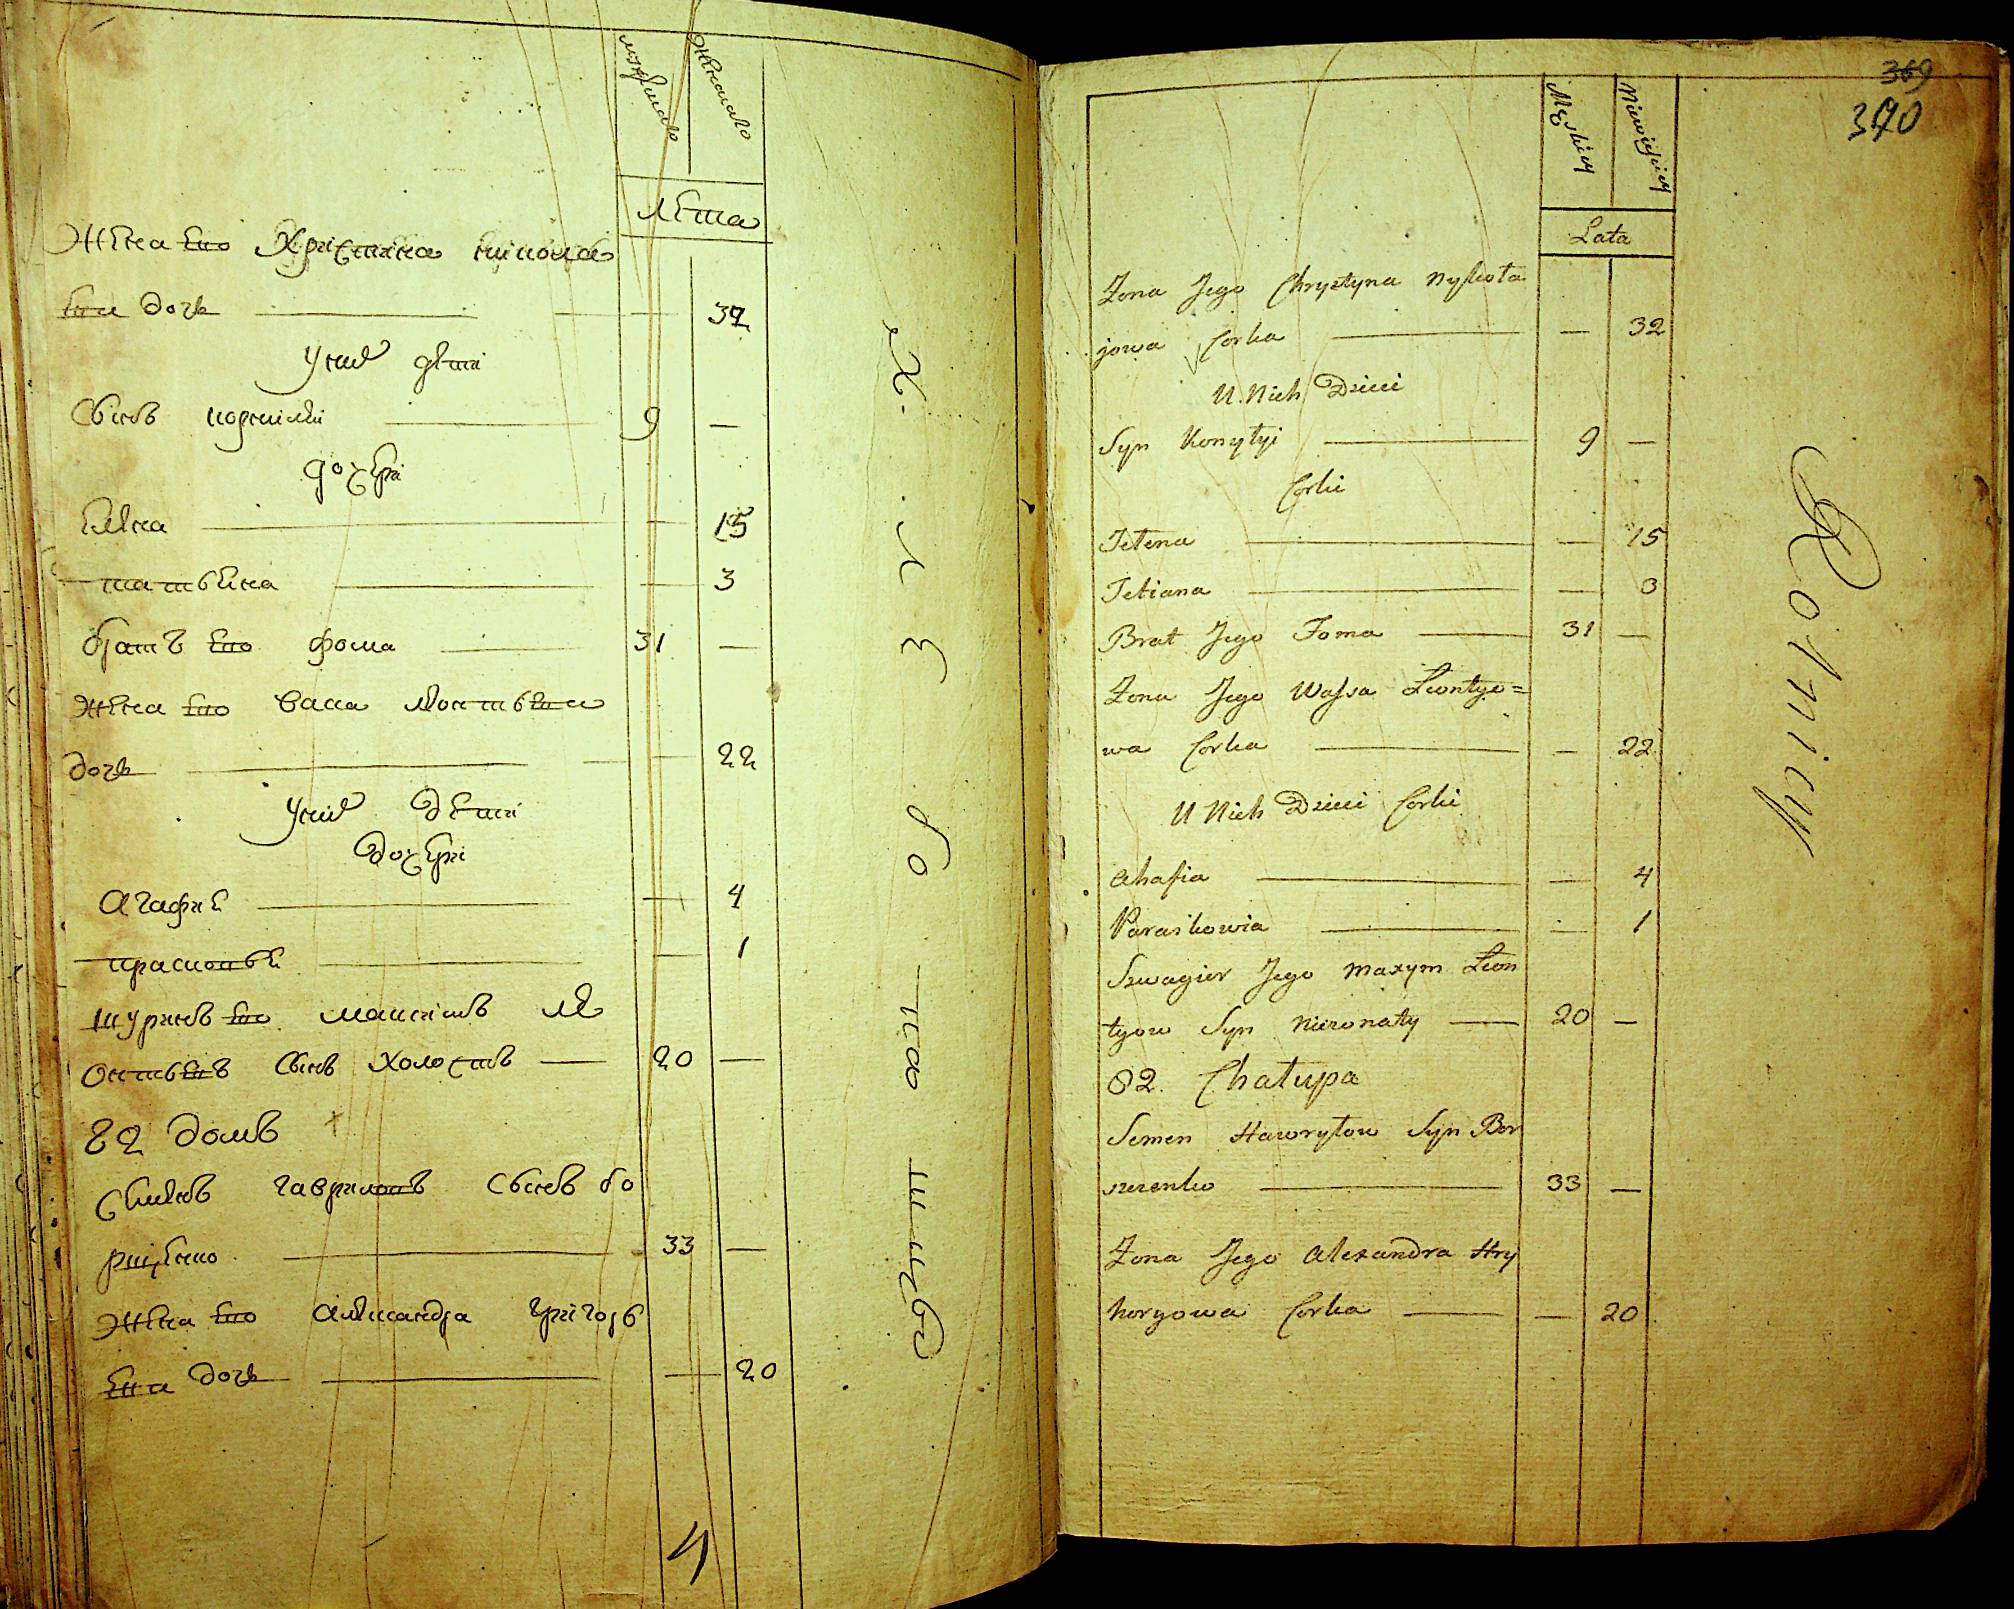 Мужеска
Женска
Лѣта
Жена его Христина николае
ева дочь 32
У них дѣти
Сынъ корнилій 9 —
дочери
Елена — 15
татьяна — 3
братъ его фома 31 —
Жена его Васса Леонтьева
дочь — 22
У них дѣти
дочери
Агафия — 4
прасковья — 1
шуринъ его максимъ Ле
онтьевъ сынъ холостъ 20 —
82 домъ
Семенъ гавриловъ сынъ бо
рщенко 33 —
Жена его александра григорь
ева дочь — 20
Хлѣбопашцы
4
369
370
Męskiey
Niewieściey
Lata
Żona Jego Chrystyna Nykoła
jowa Corka — 32
U Nich Dzieci
Syn Konyłyi 9 —
Corki
Jełena — 15
Tetiana — 3
Brat Jego Foma 31 —
Żona Jego Wassa Leontye=
wa Corka — 22
U Nich Dzieci Corki
Ahafia — 4
Paraskowia — 1
Szwagier Jego Maxym Leon
tyow Syn Nieżonaty 20 —
82. Chałupa
Semen Hawryłow Syn Bor
szczenko 33 —
Żona Jego Alexandra Hry
horyowa Corka — 20
Rolnicy